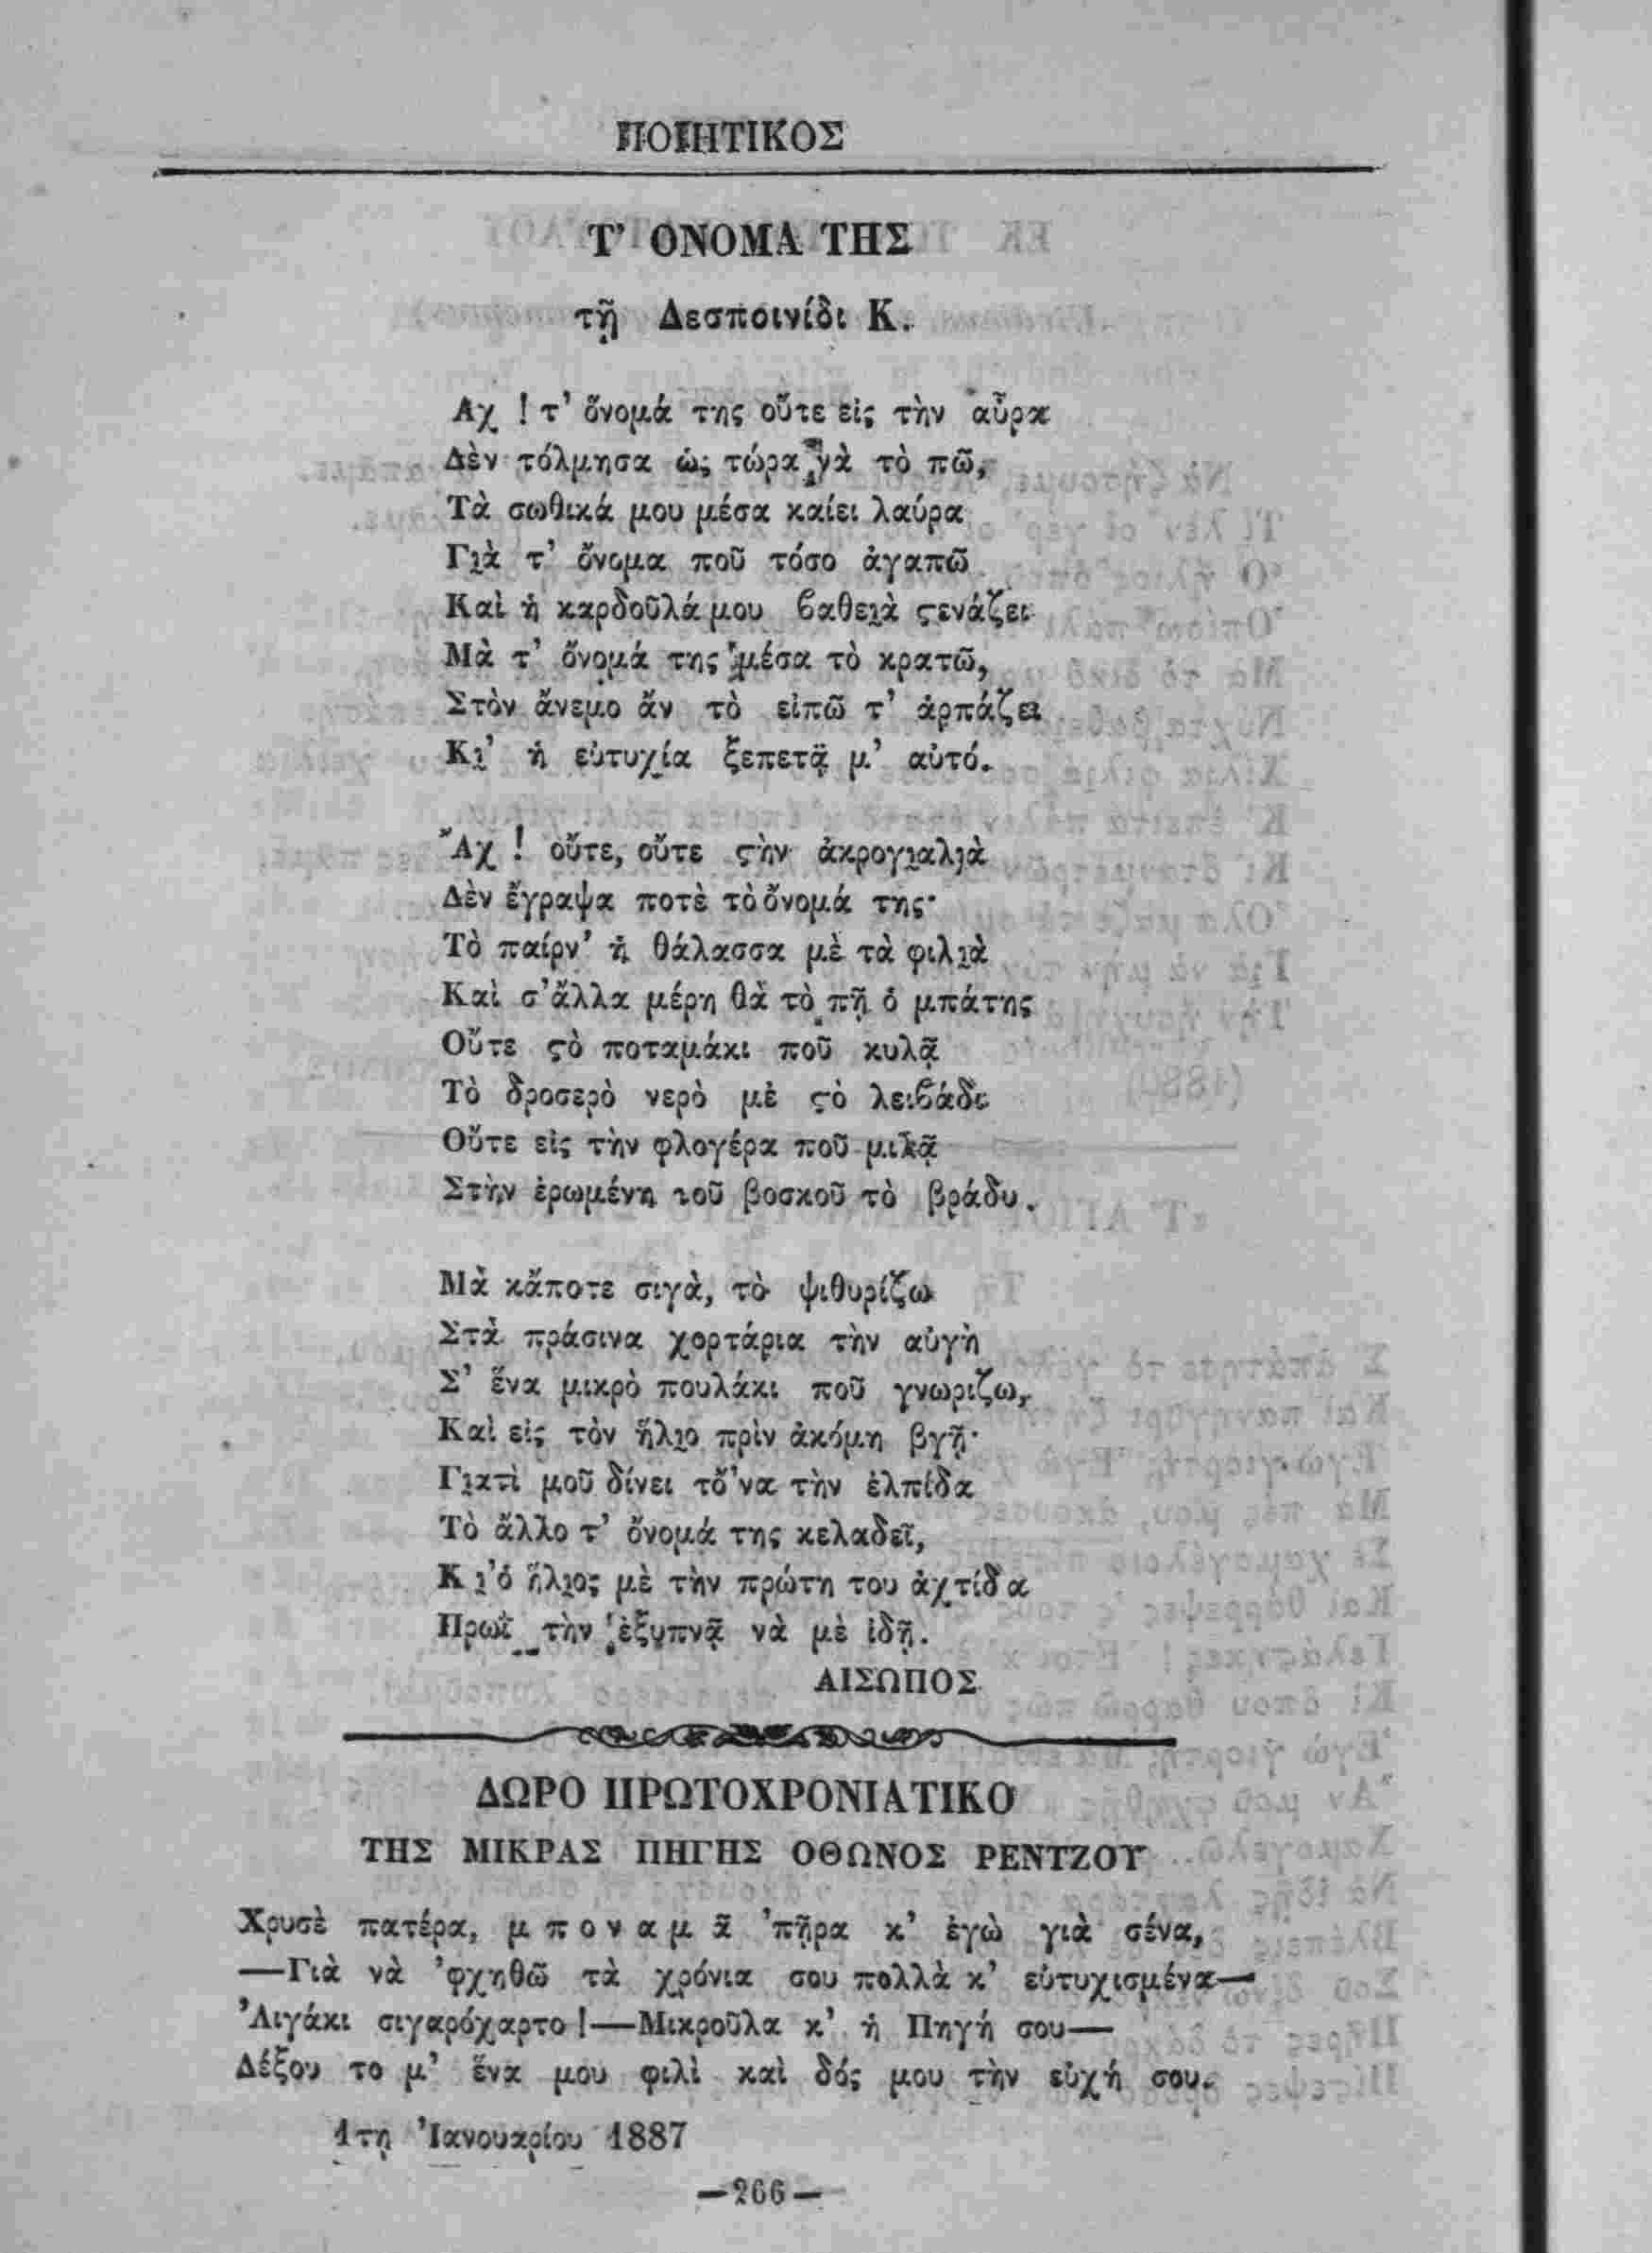 ΠΟΙΗΤΙΚΟΣ
Τ’ ΟΝΟΜΑ ΤΗΣ
τῇ Δεσποινίδι Κ.
Αχ ! τ’ ὄνομά της οὔτε εἰς τὴν αὖρα
Δὲν τόλμησα ὡς τώρα νὰ τὸ πῶ,
Τὰ σωθικά μου μέσα καίει λαύρα
Γιὰ τ’ ὄνομα ποῦ τόσο ἀγαπῶ
Καὶ ἡ καρδοῦλά μου βαθειὰ ςενάζει
Μὰ τ’ ὄνομά της μέσα τὸ κρατῶ,
Στὸν ἄνεμο ἄν τὸ εἰπῶ τ’ ἁρπάζει
Κι’ ἡ εὐτυχία ξεπετᾷ μ’ αὐτό.
Ἄχ ! οὔτε, οὔτε ςὴν ἀκρογιαλιὰ
Δὲν ἔγραψα ποτὲ τὸ ὄνομά της·
Τὸ παίρν’ ἡ θάλασσα μὲ τὰ φιλιὰ
Καὶ σ’ ἄλλα μέρη θὰ τὸ πῇ ὁ μπάτης
Οὔτε ςὸ ποταμάκι ποῦ κυλᾷ
Τὸ δροσερὸ νερὸ μὲ ςὸ λειβάδι
Οὔτε εἰς τὴν φλογέρα ποῦ μιλᾷ
Στὴν ἐρωμένη τοῦ βοσκοῦ τὸ βράδυ.
Μὰ κἄποτε σιγὰ, τὸ ψιθυρίζω
Στὰ πράσινα χορτάρια τὴν αὐγὴ
Σ’ ἕνα μικρὸ πουλάκι ποῦ γνωριζω,
Καὶ εἰς τὸν ἥλιο πρὶν ἀκόμη βγῇ·
Γιατὶ μοῦ δίνει τὄ’να τὴν ἐλπίδα
Τὸ ἄλλο τ’ ὄνομά της κελαδεῖ,
Κι’ ὁ ἥλιος μὲ τὴν πρώτη του ἀχτίδα
Πρωῒ τὴν ἐξυπνᾷ νὰ μὲ ἰδῇ.
ΑΙΣΩΠΟΣ
ΔΩΡΟ ΠΡΩΤΟΧΡΟΝΙΑΤΙΚΟ
ΤΗΣ ΜΙΚΡΑΣ ΠΗΓΗΣ ΟΘΩΝΟΣ ΡΕΝΤΖΟΥ
Χρυσὲ πατέρα, μ π ο ν α μ ᾶ ’πῆρα κ’ ἐγὼ γιὰ σένα,
—Γιὰ νὰ ’φχηθῶ τὰ χρόνια σου πολλὰ κ’ εὐτυχισμένα—
’Λιγάκι σιγαρόχαρτο!—Μικροῦλα κ’ ἡ Πηγή σου—
Δέξου το μ’ ἕνα μου φιλὶ καὶ δός μου τὴν εὐχή σου.
1τῃ Ἰανουαρίου 1887
—266—